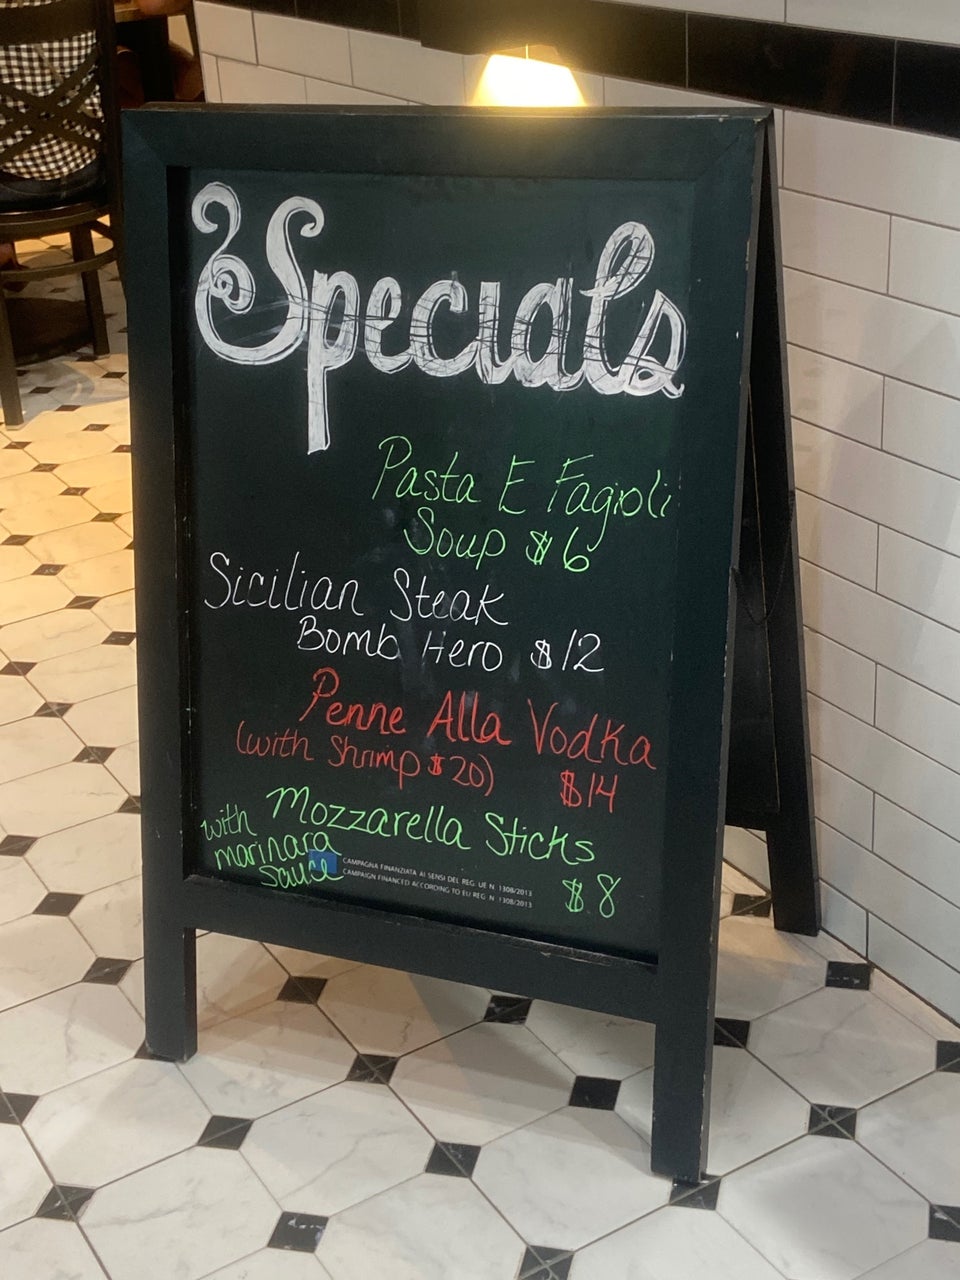 Specials
Pasta E Fagioli
Soup $6
Sicilian Steak
Bomb Hero $12
Penne Alla Vodka
(with Shrimp $20) $14
Mozzarella Sticks
with
marinara
sauce
$8
CAMPAGNA FINANZIATA AI SENSI DEL REG. UE N. 1308/2013
CAMPAIGN FINANCED ACCORDING TO EU REG. N. 1308/2013